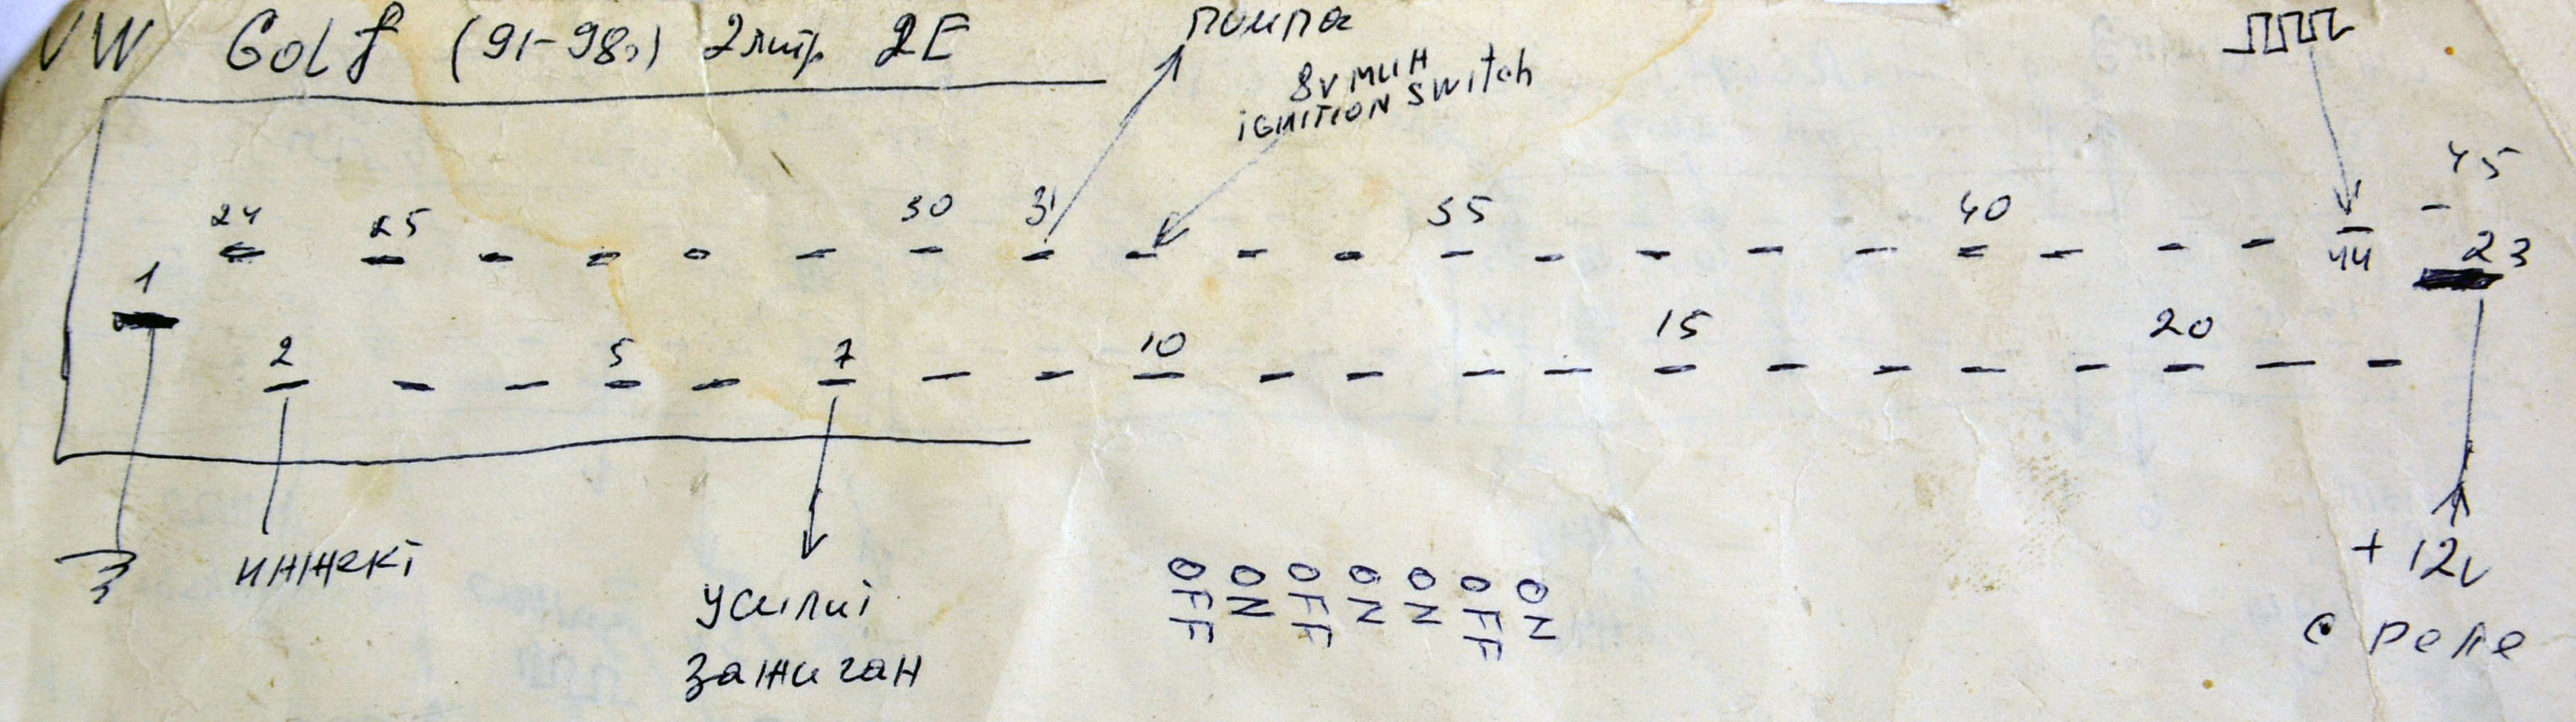 VW Golf (91-98г) 2литр. 2E
помпа
8v мин
ignition switch
45
24 25 30 31 35 40
44 23
1
2 5 7 10 15 20
инжект
+ 12v
с реле
усилит
зажиган
OFF
ON
OFF
ON
ON
OFF
ON